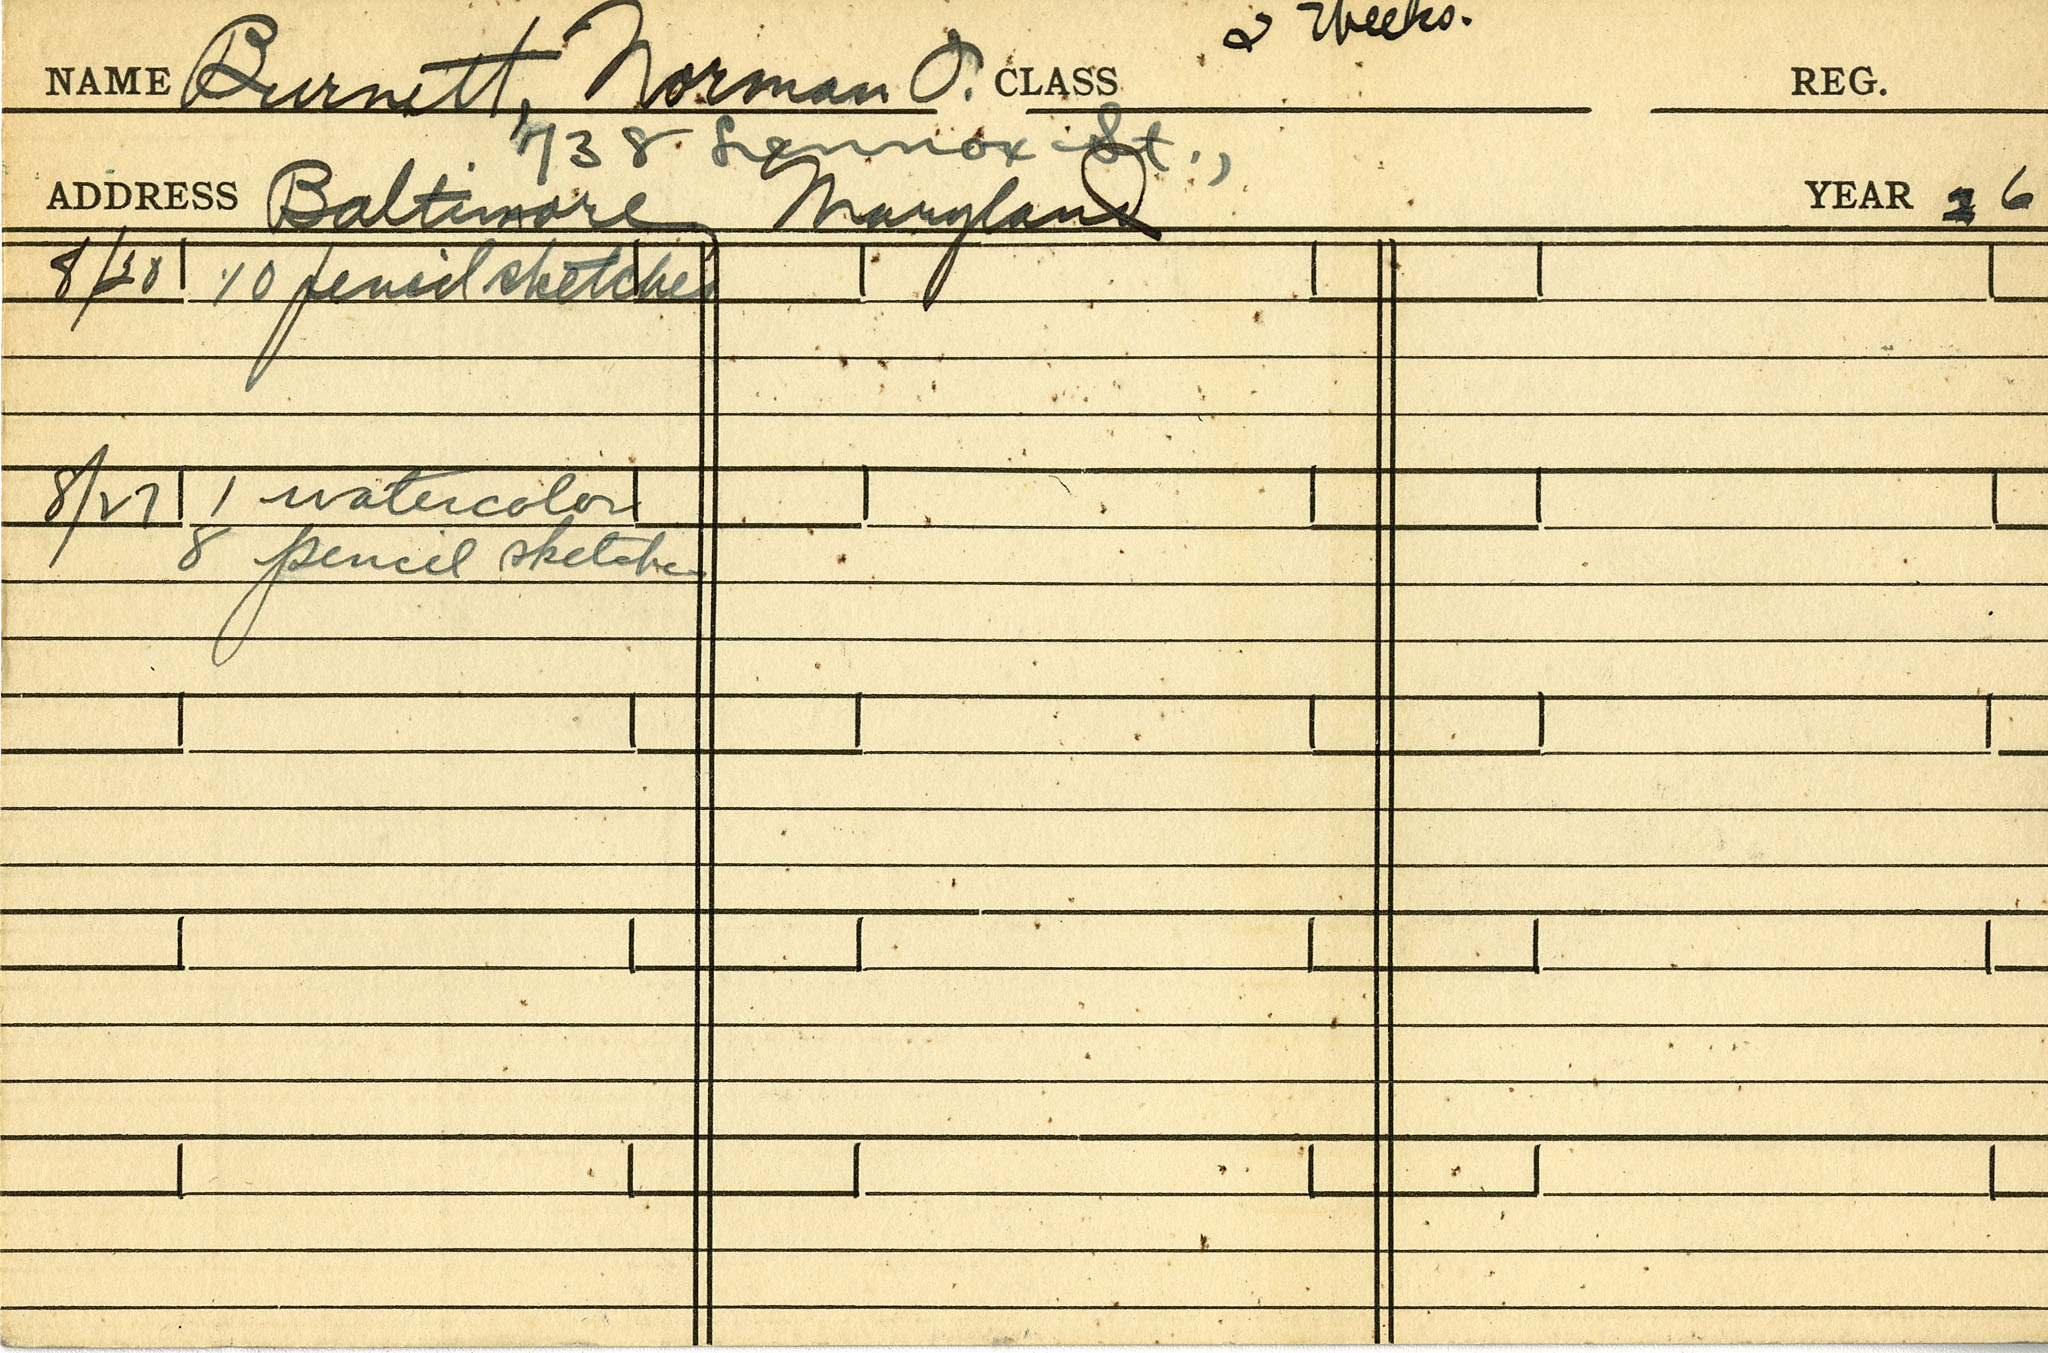 2 Weeks.
NAME Burnett, Norman O. CLASS REG.
738 Lennox St.,
ADDRESS Baltimore, Maryland YEAR 26
8/20 10 pencil sketches
8/27 1 watercolor
8 pencil sketches